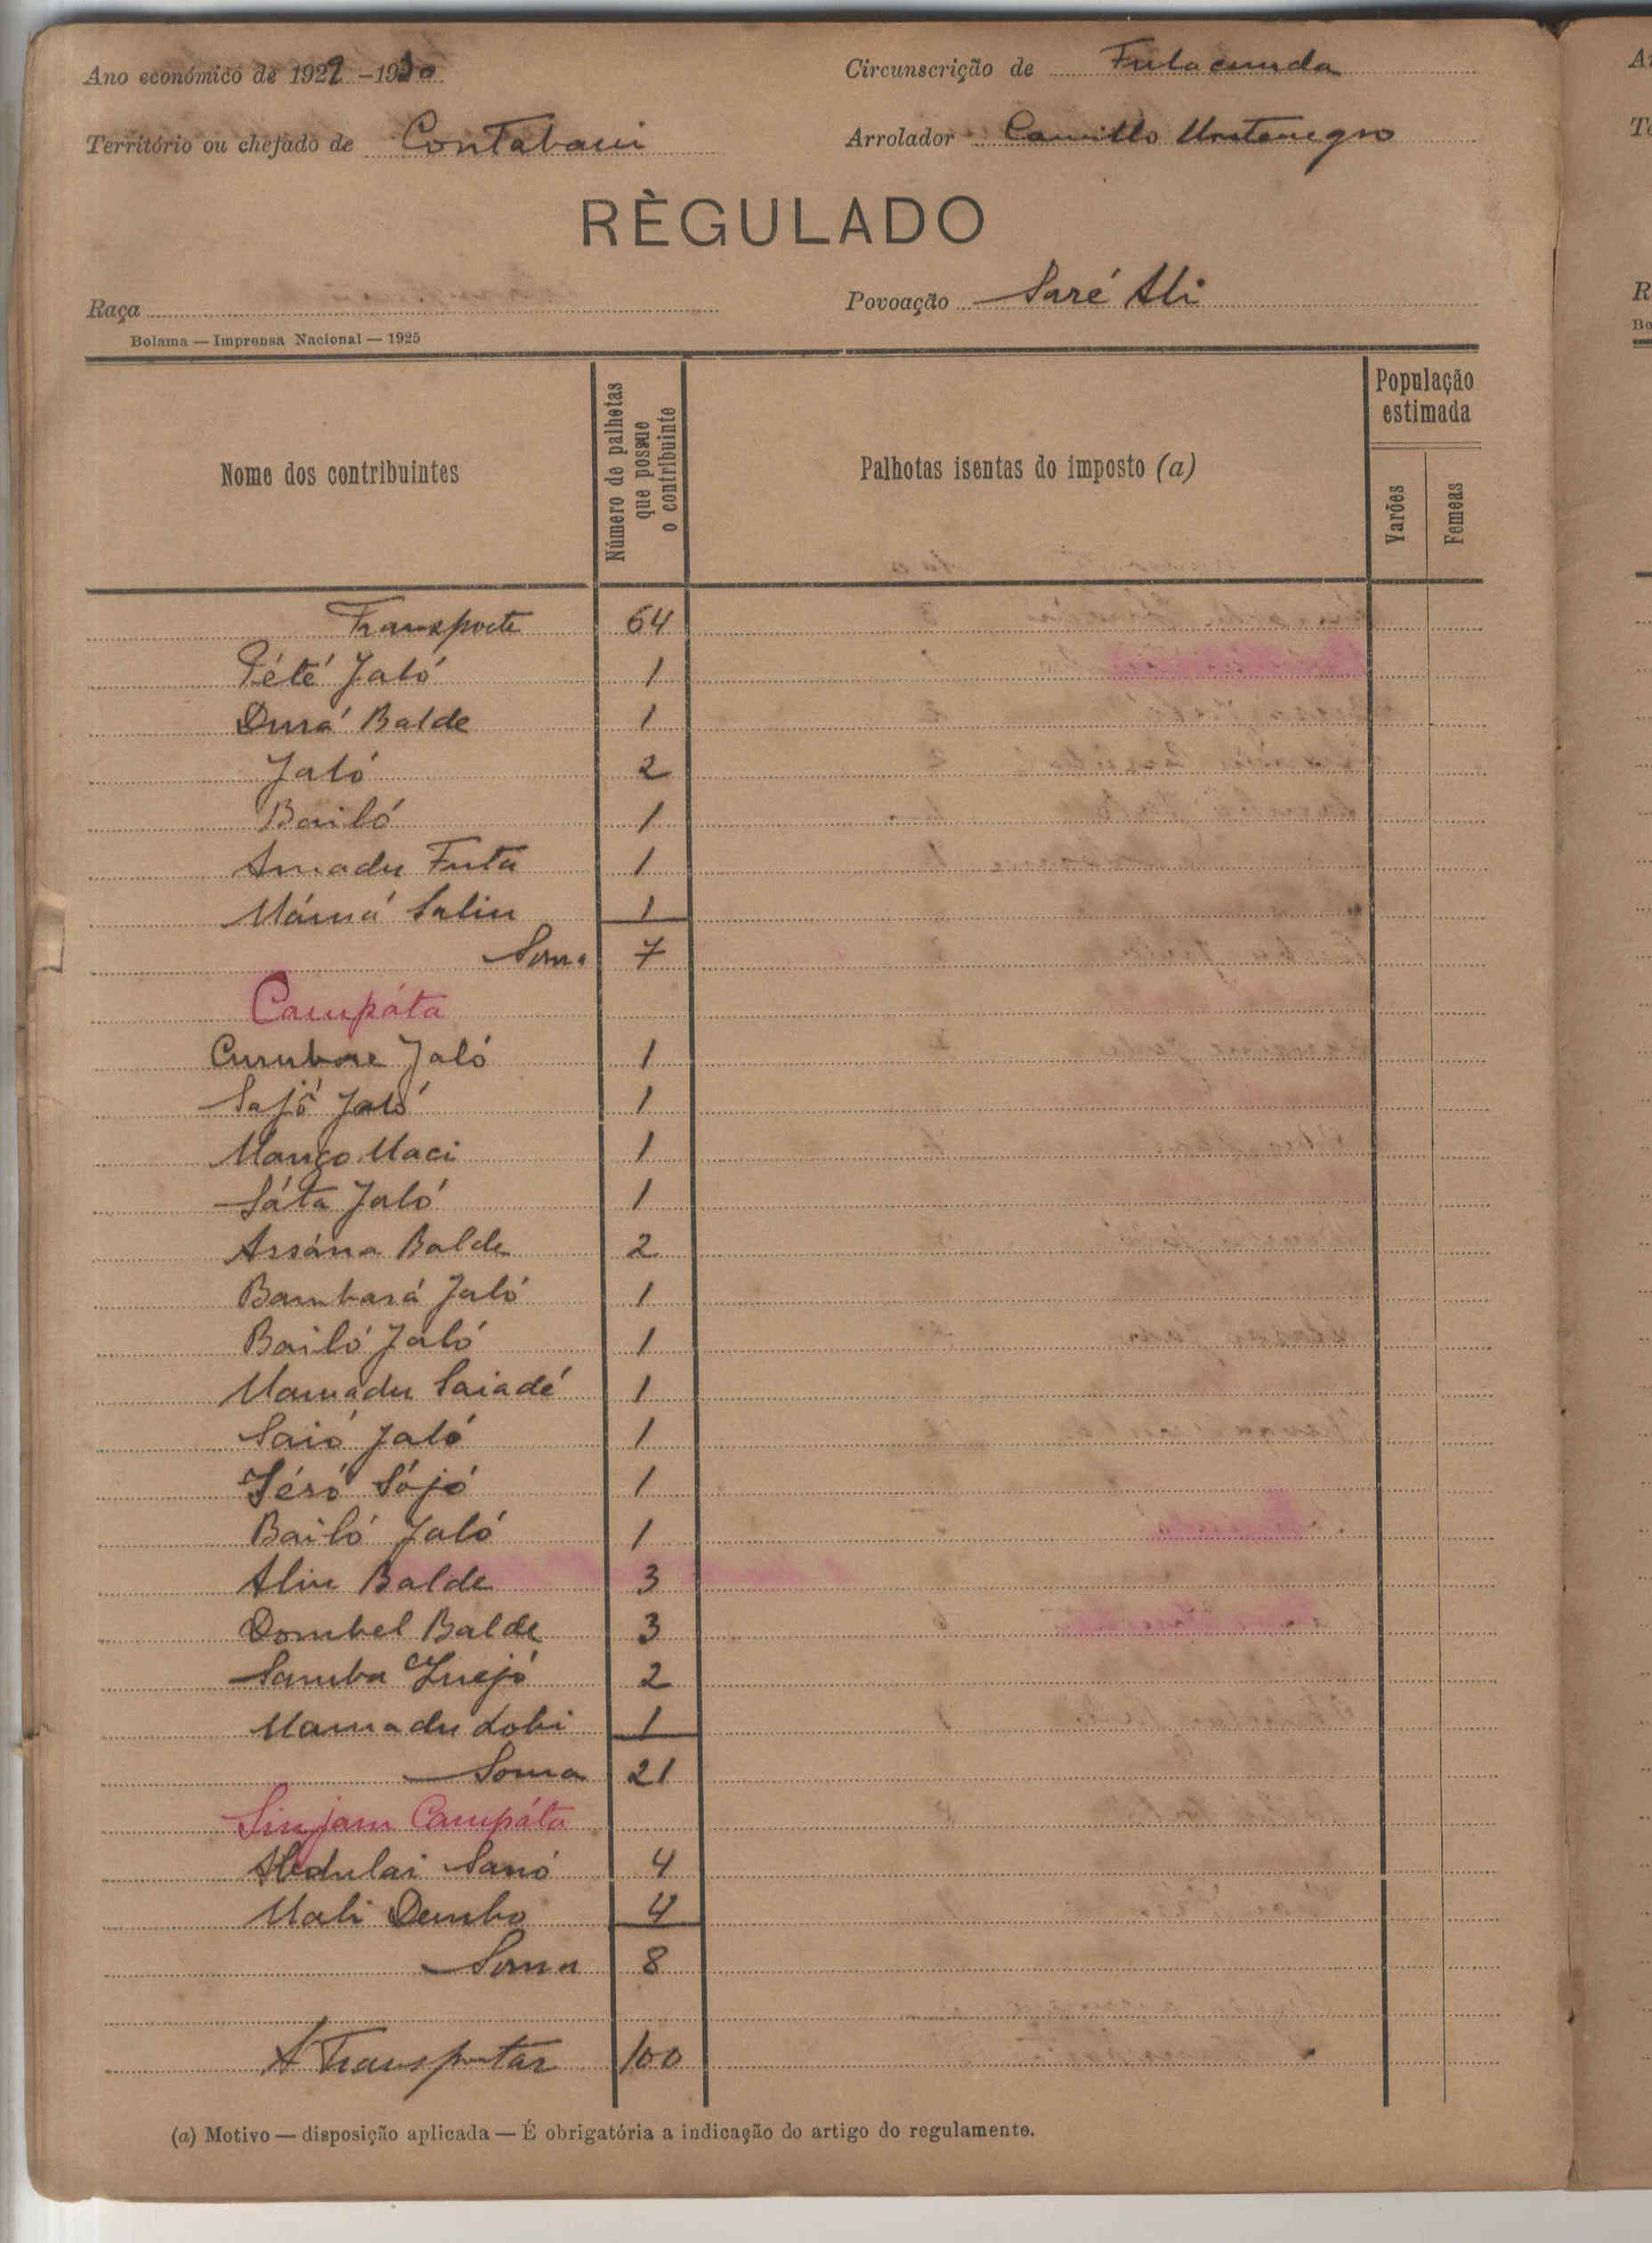 Ano económico de 1929-1930
Circunscrição de Fulacunda
Território ou chefado de Contabani
Arrolador Camillo Montenegro
RÈGULADO
Raça
Povoação Saré Ali
Bolama — Imprensa Nacional — 1925
Nome dos contribuintes
Número de palhotas que possue o contribuinte
Palhotas isentas do imposto (a)
População estimada
Varões
Femeas
Transporte 64
Tété Jaló 1
Durá Balde 1
Jaló 2
Bailó 1
Amadu Futa 1
Mámá Saliu 1
Soma 7
Campáta
Curubore Jaló 1
Sajó Jaló 1
Março Maci 1
Sáta Jaló 1
Assána Balde 2
Bambará Jaló 1
Bailó Jaló 1
Mamadu Saiadé 1
Saió Jaló 1
Séró Sójó 1
Bailó Jaló 1
Aliu Balde 3
Dombel Balde 3
Samba 2
Mamadu Lobi 1
Soma 21
Sinjam Campáta
Abdulai Sanó 4
Mali Dembo 4
Soma 8
A Transportar 100
(a) Motivo — disposição aplicada — É obrigatória a indicação do artigo do regulamento.